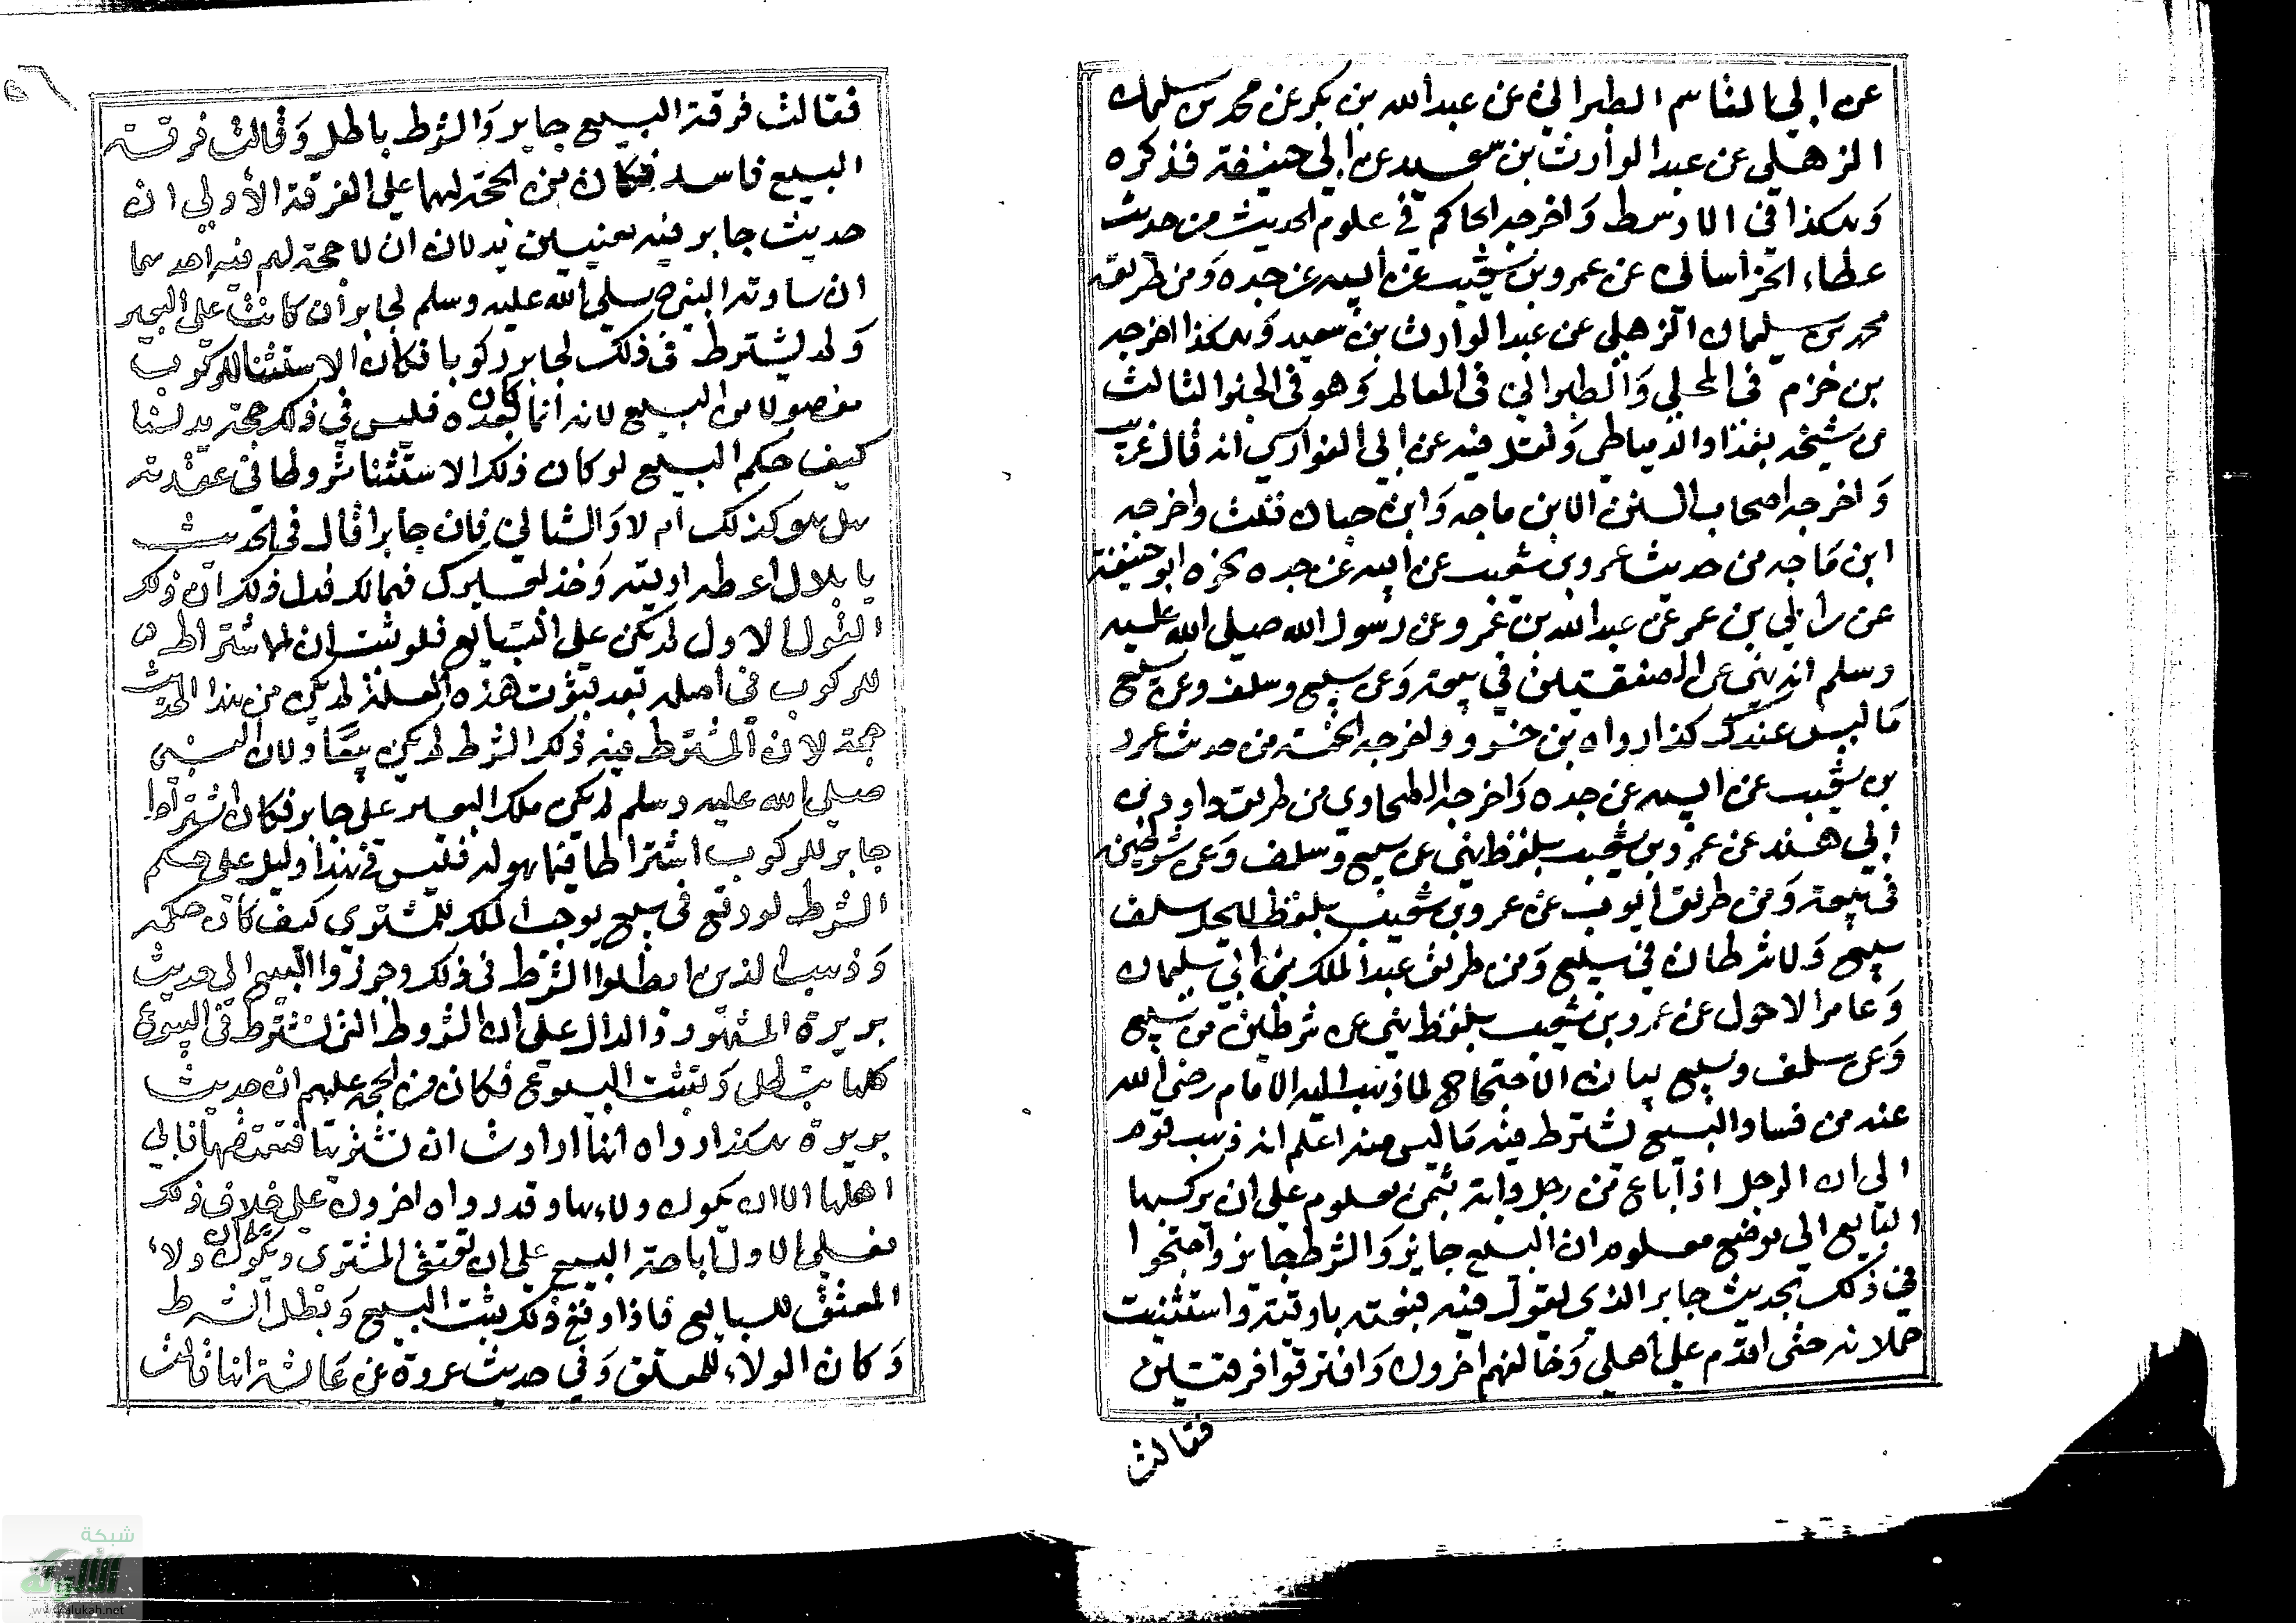 عن ابي القاسم الطبراني عن عبدالله بن بكر عن محمد بن سليمان
الزهلي عن عبد الوارث بن سعيد عن ابي حنيفة فذكره
وهكذا في الاوسط واخرجه الحاكم في علوم الحديث من حديث
عطاء الخراساني عن عمرو بن شعيب عن ابيه عن جده ومن طريقه
محمد بن سليمان الزهلي عن عبد الوارث بن سعيد وهكذا اخرجه
بن خزم في المحلي والطبراني في المعالم وهو في الجزو الثالث
من شيخه بغذا والدمياطي ونقل فيه عن ابي الفوارس انه قال غريب
واخرجه اصحاب السنن الا بن ماجه وابن حبان قلت واخرجه
ابن ماجه من حديث عمرو بن شعيب عن ابيه عن جده نحوه ابو حنيفة
عن عن عبد الله بن عمرو عن رسول الله صلي الله عليه
وسلم انه نهي عن الصفقتين في بيعة وعن بيع وسلف وعن بيع
ما ليس عندك كذا رواه بن خسرو واخرجه الخمسة من حديث عمرو
بن شعيب عن ابيه عن جده واخرجه الطحاوي من طريق داود بن
ابي هند عن عمرو بن شعيب بلفظ نهي عن بيع وسلف وعن شرطين
في بيعة ومن طريق ايوب عن عمرو بن شعيب بلفظ لا يحل سلف
بيع ولا شرطان في بيع ومن طريق عبد الملك بن ابي سليمان
وعامر الاحول عن عمرو بن شعيب بلفظ نهي عن شرطين من بيع
وعن سلف وبيع بيان الاحتجاج لما ذهب اليه الامام رضي الله
عنه من فساد البيع يشترط فيه ما ليس منه اعلم انه ذهب قوم
الي ان الرجل اذا باع من رجل دابة بثمن معلوم علي ان يركبها
البايع الي موضع معلوم ان البيع جايز والشرط جايز واحتجوا
في ذلك بحديث جابر الذي يقول فيه فبعته باوقية واستثنيت
حملانه حتي اقدم علي اهلي وخالفهم اخرون وافترقوا فرقتين
فقالت
فقالت فرقة البيع جايز والشرط باطل وقالت فرقة
البيع فاسد فكان من الحجة لهما علي الفرقة الأولي ان
حديث جابر فيه معنيين يدلان ان لا حجة لهم فيه احدهما
ان مساومة النبي صلي الله عليه وسلم لجابر أن كانت علي البعير
ولم يشترط في ذلك لجابر ركوبا فكان الاستثنا للركوب
مفصولا من البيع لانه انما كان بعده فليس في ذلك حجة يدلنا
كيف حكم البيع لو كان ذلك الاستثنا شروطا في عقدته
هل هو كذلك ام لا والثاني فان جابرا قال في الحديث
يا بلال اعطه اوقيته وخذ بعيرك فهما لك فدل ذلك ان ذلك
القول الاول لم يكن علي التبايع فلو ثبت ان الاشتراط
للركوب في اصله بعد ثبوت هذه العلة لم يكن من هذا الحديث
حجة لان المشترط فيه ذلك الشرط لم يكن بيعا ولان النبي
صلي الله عليه وسلم لم يكن ملك البعير علي جابر فكان اشترا
جابر للركوب اشتراطا فيما هو له فليس في هذا دليل علي حكم
الشرط لو وقع في بيع يوجب الملك للمشتري كيف كان حكمه
وذهب الذين ابطلوا الشرط في ذلك وجوزوا البيع الي حديث
بريرة المشهور والدال علي ان الشروط التي تشترط في البيوع
كلها تبطل وتثبت البيوع فكان من الحجة عليهم ان حديث
بريرة هكذا رواه انها ارادت ان تشتريها فتعتقها فابي
اهلها الا ان يكون ولاءها وقد رواه اخرون علي خلاف ذلك
فعلي الاول اباحة البيع علي ان تعتق المشتري ويكون ولاء
المعتق للبايع فاذا وقع ذلك يثبت البيع وتبطل الشرط
وكان الولاء للمعتق وفي حديث عروة عن عائشة انها قالت
شبكة
الألوكة
www.alukah.net